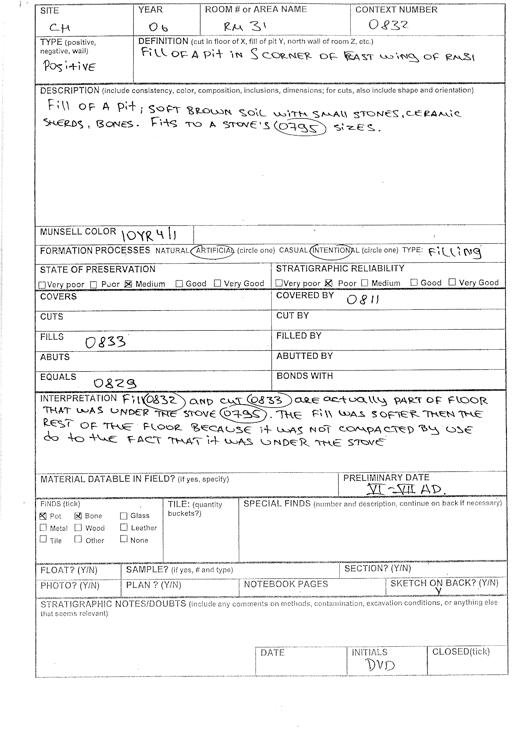 SITE YEAR ROOM # or AREA NAME CONTEXT NUMBER
CH 06 RM 31 0832
TYPE (positive, negative, wall) DEFINITION (cut in floor of X, fill of pit Y, north wall of room Z, etc.)
Positive Fill OF A Pit iN S CORNER OF EAST Wing OF RM31
DESCRIPTION (include consistency, color, composition, inclusions, dimensions; for cuts, also include shape and orientation)
Fill OF A Pit; SOFT BROWN SOIL WITH SMALL STONES, CERAMIC
SHERDS, BONES. Fits TO A STOVE'S (0795) SIZES.
MUNSELL COLOR 10YR 4/1
FORMATION PROCESSES NATURAL ARTIFICIAL (circle one) CASUAL INTENTIONAL (circle one) TYPE: Filling
STATE OF PRESERVATION STRATIGRAPHIC RELIABILITY
☐Very poor ☐ Poor ☒ Medium ☐ Good ☐ Very Good ☐Very poor ☒ Poor ☐ Medium ☐ Good ☐ Very Good
COVERS COVERED BY 0811
CUTS CUT BY
FILLS 0833 FILLED BY
ABUTS ABUTTED BY
EQUALS 0829 BONDS WITH
INTERPRETATION Fill (0832) AND CUT (0833) ARE ACTUALLY PART OF FLOOR
THAT WAS UNDER THE STOVE (0795). THE Fill WAS SOFTER THEN THE
REST OF THE FLOOR BECAUSE IT WAS NOT COMPACTED BY USE
do to the FACT THAT it WAS UNDER THE STOVE
MATERIAL DATABLE IN FIELD? (if yes, specify) PRELIMINARY DATE
VI - VII AD.
FINDS (tick) TILE: (quantity buckets?) SPECIAL FINDS (number and description, continue on back if necessary)
☒ Pot ☒ Bone ☐ Glass
☐ Metal ☐ Wood ☐ Leather
☐ Tile ☐ Other ☐ None
FLOAT? (Y/N) SAMPLE? (if yes, # and type) SECTION? (Y/N)
PHOTO? (Y/N) PLAN ? (Y/N) NOTEBOOK PAGES SKETCH ON BACK? (Y/N)
Y
STRATIGRAPHIC NOTES/DOUBTS (include any comments on methods, contamination, excavation conditions, or anything else
that seems relevant)
DATE INITIALS CLOSED(tick)
DVD